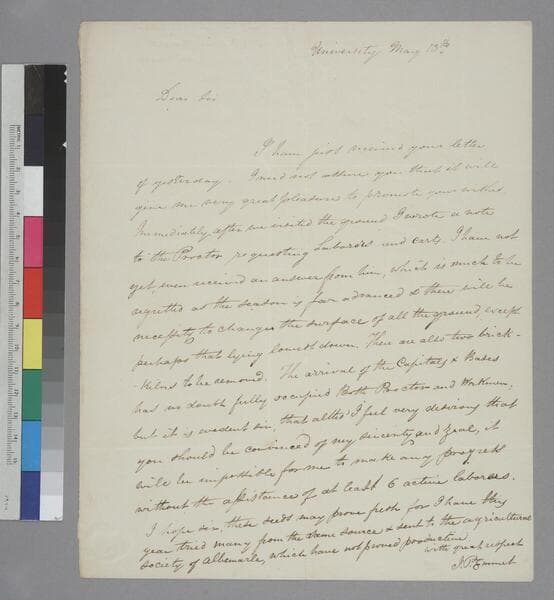 University May 13th
Dear Sir
I have just received your letter
of yesterday. I need not assure you that it will
give me very great pleasure to promote your wishes.
Immediately after we visited the ground I wrote a note
to the Proctor requesting Labourers and Carts. I have not
yet even received an answer from him, which is much to be
regretted as the season is far advanced & there will be
necessity to change the surface of all the ground, except
perhaps that lying lowest down. There are also two brick-
-kilns to be removed. The arrival of the Capitals & Bases
has no doubt fully occupied Both Proctor and Workmen;
but it is evident sir, that altho' I feel very desirous that
you should be convinced of my sincerity and zeal, it
will be impossible for me to make any progress
without the assistance of at least 6 active laborers.
I hope sir, these seeds may prove fresh for I have this
year tried many from the same source & sent to the agricultural
society of Albemarle, which have not proved productive
with great respect
J P Emmet